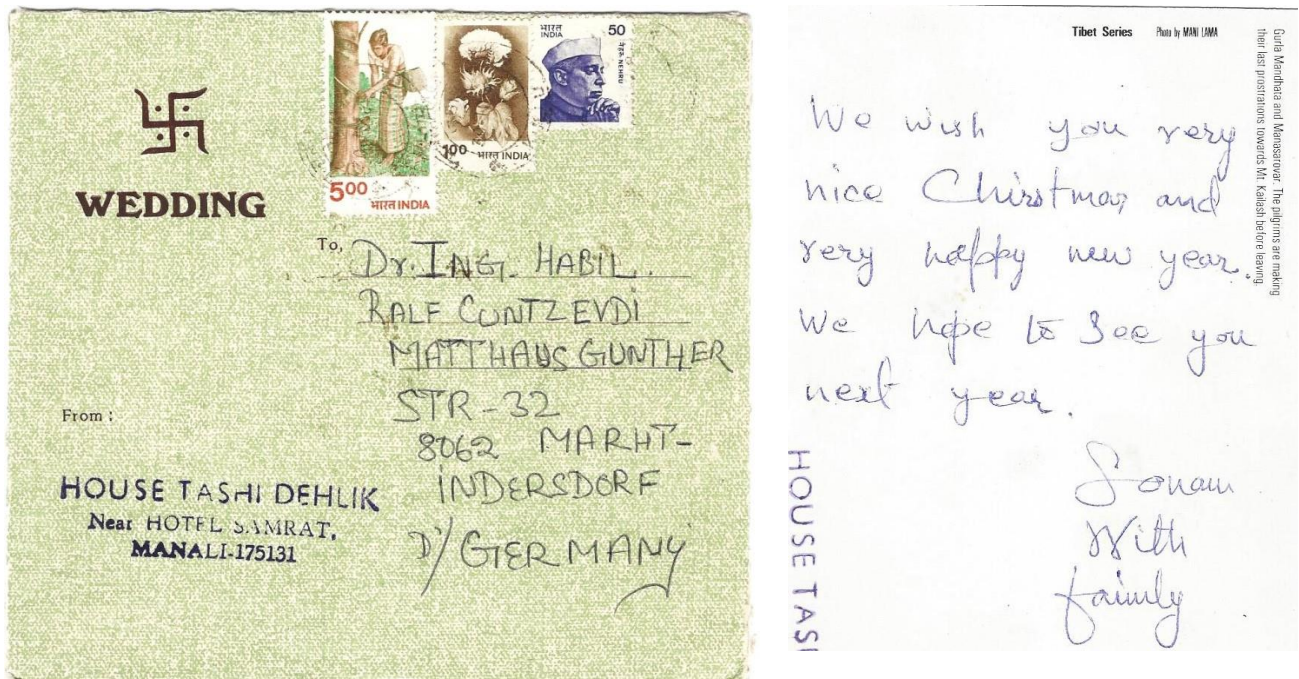 WEDDING
भारत INDIA
5.00
भारत INDIA
1.00
भारत
INDIA
50
नेहरू NEHRU
To,
Dr. ING. HABIL.
RALF CUNTZEVDI
MATTHAUS GUNTHER
STR-32
8062 MARHT-
INDERSDORF
D'/GERMANY
From :
HOUSE TASHI DEHLIK
Near HOTEL SAMRAT,
MANALI-175131
Tibet Series Photo by MANI LAMA
Gurla Mandhata and Manasarovar. The pilgrims are making
their last prostrations towards Mt. Kailash before leaving.
We wish you very
nice Chirstmas and
very happy new year.
We hope to See you
next year.
Sonam
With
faimly
HOUSE TASI